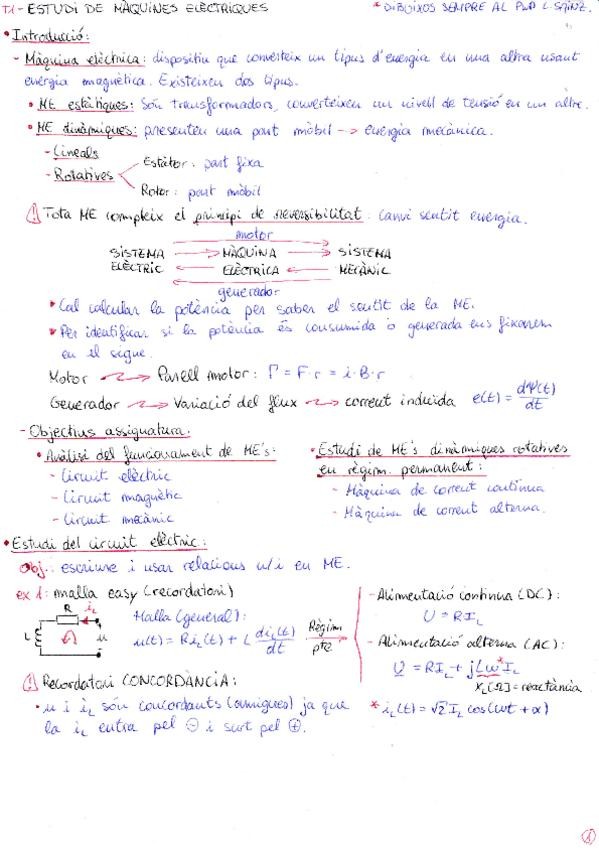 T.1 - ESTUDI DE MÀQUINES ELÈCTRIQUES
* DIBUIXOS SEMPRE AL PWP L. SAINZ.
• Introducció:
- Màquina elèctrica: dispositiu que converteix un tipus d'energia en una altra usant
energia magnètica. Existeixen dos tipus.
• ME estàtiques: Són transformadors, converteixen un nivell de tensió en un altre.
• ME dinàmiques: presenten una part mòbil -> energia mecànica.
- Lineals
- Rotatives
Estàtor: part fixa
Rotor: part mòbil
! Tota ME compleix el principi de reversibilitat: canvi sentit energia.
motor
SISTEMA MÀQUINA SISTEMA
ELÈCTRIC ELÈCTRICA MECÀNIC
generador
• Cal calcular la potència per saber el sentit de la ME.
• Per identificar si la potència és consumida o generada ens fixarem
en el signe.
Motor Parell motor: Γ = F·r = i·B·r
Generador Variació del flux corrent induïda e(t) = dΨ(t)/dt
- Objectius assignatura:
• Anàlisi del funcionament de ME's:
- Circuit elèctric
- Circuit magnètic
- Circuit mecànic
• Estudi de ME's dinàmiques rotatives
en règim permanent:
- Màquina de corrent contínua
- Màquina de corrent alterna.
• Estudi del circuit elèctric:
Obj.: escriure i usar relacions u/i en ME.
ex 1: malla easy (recordatori)
R iL
L u
Malla (general):
u(t) = R iL(t) + L diL(t)/dt
Règim
pte
- Alimentació contínua (DC):
U = R IL
- Alimentació alterna (AC):
U = R IL + j Lω* IL
XL [Ω] = reactància
! Recordatori CONCORDÀNCIA:
• u i iL són concordants (amigues) ja que
la iL entra pel ⊖ i surt pel ⊕.
* iL(t) = √2 IL cos(ωt + α)
1